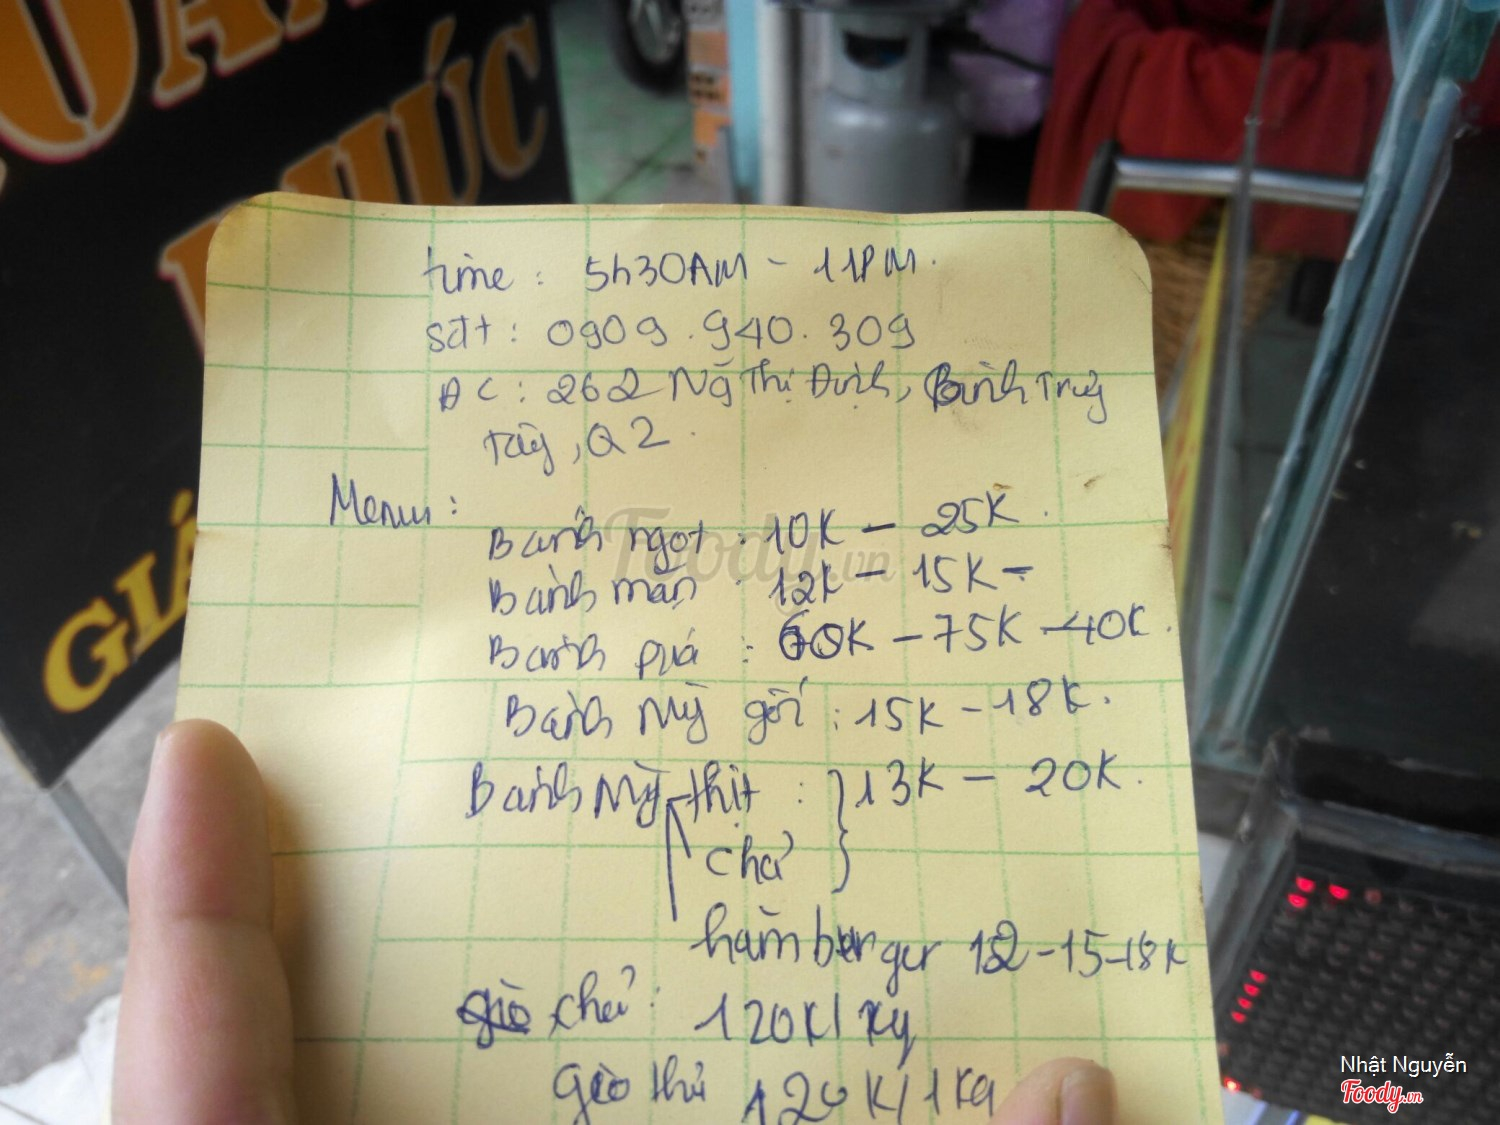 ÚC
GIÁ
time : 5h30AM - 11PM.
sđt : 0909.940.309
ĐC : 262 Ng Thị Định, Bình Trưng
Tây, Q2.
Menu :
Bánh ngọt : 10K - 25K.
Bánh mặn : 12K - 15K -
Bánh quá : 60K - 75K - 40K.
Bánh Mỳ gối : 15K - 18K.
Bánh Mỳ thịt : 13K - 20K.
chả
hămburger 12-15-18K
giò chả : 120K/1Kg
Giò thủ 120K/1Kg
Foody.vn
Nhật Nguyễn
Foody.vn